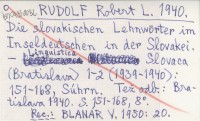 RUDOLF Robert L. 1940.
Die slovakischen Lehnwörter im
Inseldeutschen in der Slovakei.
- Linguistica Slovaca
(Bratislava) 1-2 (1939-1940):
151-168, Sührn. Tex adb.: Bra-
tislava 1940. S. 151-168, 8°.
Rec.: BLANÁR V. 1950: 20.